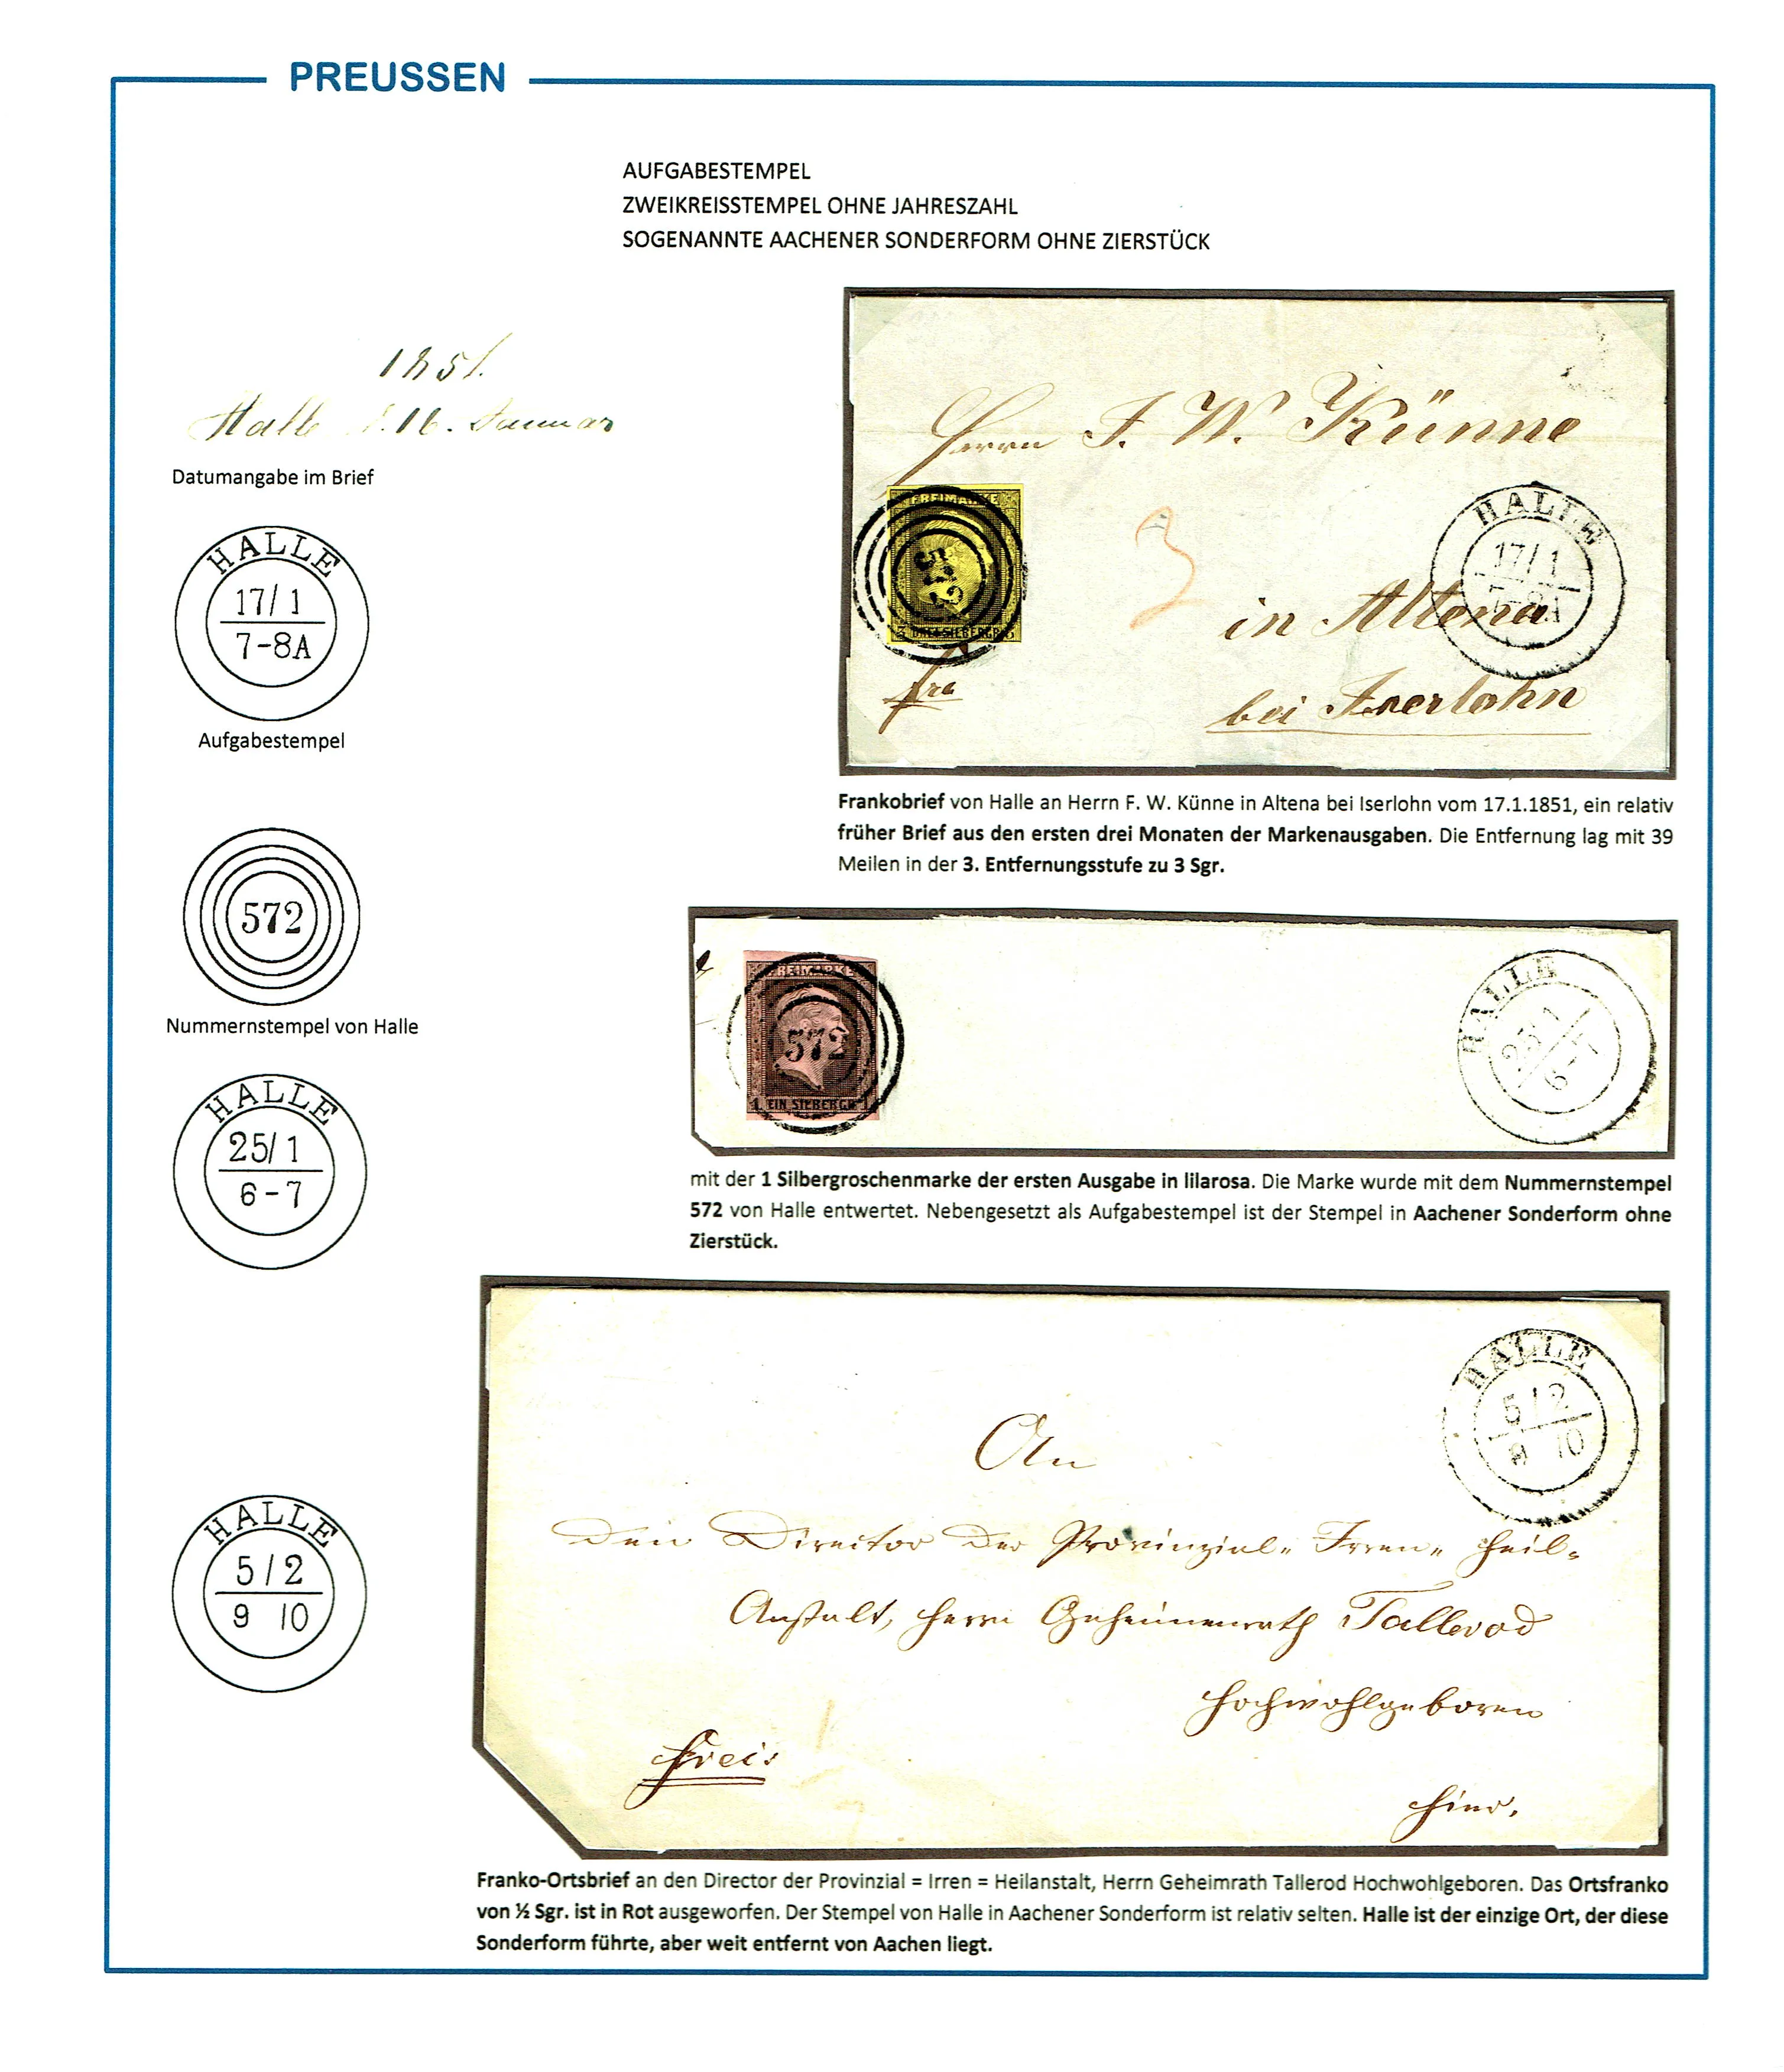 PREUSSEN
AUFGABESTEMPEL
ZWEIKREISSTEMPEL OHNE JAHRESZAHL
SOGENANNTE AACHENER SONDERFORM OHNE ZIERSTÜCK
1851.
Halle d. 16. Januar
Datumangabe im Brief
HALLE
17/ 1
7-8A
Aufgabestempel
572
Nummernstempel von Halle
HALLE
25/ 1
6-7
HALLE
5/2
9 10
Herrn F. W. Künne
FREIMARKE
572
3 DREI SILBERGR. 3
3
HALLE
17/ 1
7-8A
in Altena
fro
bei Iserlohn
Frankobrief von Halle an Herrn F. W. Künne in Altena bei Iserlohn vom 17.1.1851, ein relativ
früher Brief aus den ersten drei Monaten der Markenausgaben. Die Entfernung lag mit 39
Meilen in der 3. Entfernungsstufe zu 3 Sgr.
FREIMARKE
572
1 EIN SILBERGR. 1
HALLE
25/ 1
6-7
mit der 1 Silbergroschenmarke der ersten Ausgabe in lilarosa. Die Marke wurde mit dem Nummernstempel
572 von Halle entwertet. Nebengesetzt als Aufgabestempel ist der Stempel in Aachener Sonderform ohne
Zierstück.
HALLE
5/2
9 10
An
den Director der Provinzial- Irren- Heil-
Anstalt, Herrn Geheimenrath Tallerod
Hochwohlgeboren
frei.
hier.
Franko-Ortsbrief an den Director der Provinzial = Irren = Heilanstalt, Herrn Geheimrath Tallerod Hochwohlgeboren. Das Ortsfranko
von ½ Sgr. ist in Rot ausgeworfen. Der Stempel von Halle in Aachener Sonderform ist relativ selten. Halle ist der einzige Ort, der diese
Sonderform führte, aber weit entfernt von Aachen liegt.